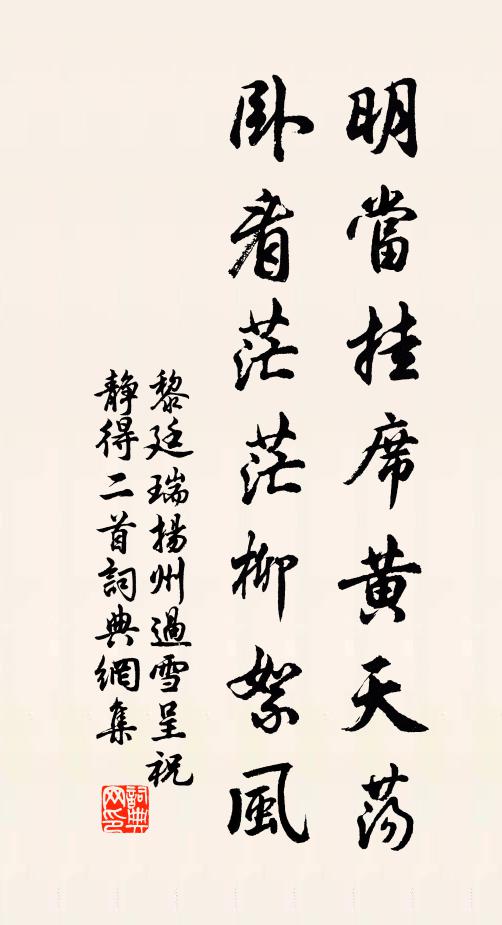 明當挂席黄天荡
卧看茫茫柳絮風
黎廷瑞揚州過雪呈祝
静得二首詞典網集
詞典
网印